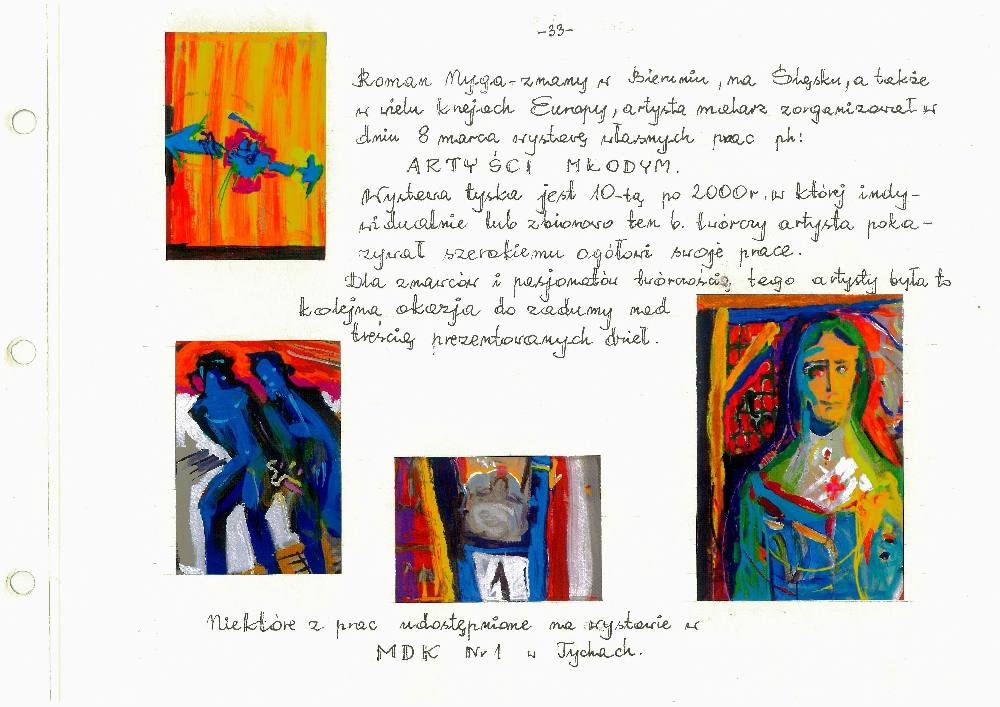 -33-
Roman Nyga - znamy w Bieruniu, na Śląsku, a także
w wielu krajach Europy, artysta malarz zorganizował w
dniu 8 marca wystawę własnych prac pt:
ARTYŚCI MŁODYM.
Wystawa tyska jest 10-tą po 2000r. w której indy-
widualnie lub zbiorowo ten b. twórczy artysta poka-
zywał szerokiemu ogółowi swoje prace.
Dla znawców i pasjonatów twórczością tego artysty była to
kolejna okazja do zadumy nad
treścią prezentowanych dzieł.
1
Niektóre z prac udostępnione na wystawie w
MDK Nr 1 w Tychach.